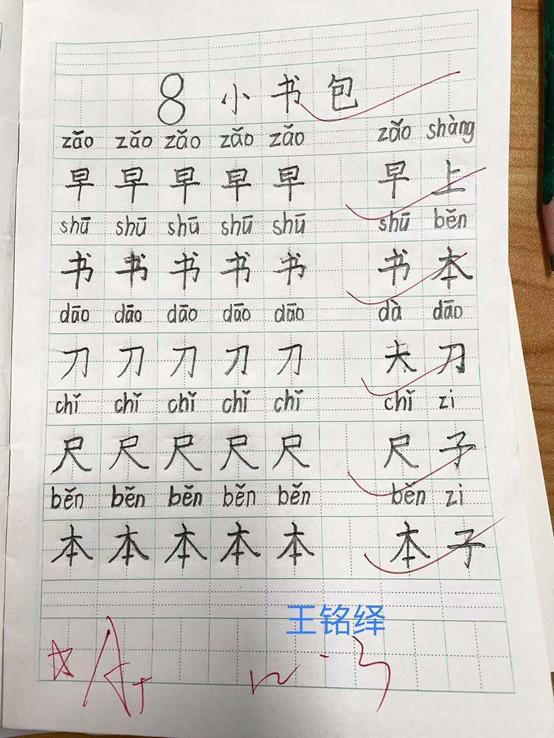 8 小书包
zǎo zǎo zǎo zǎo zǎo zǎo shàng
早 早 早 早 早 早 上
shū shū shū shū shū shū běn
书 书 书 书 书 书 本
dāo dāo dāo dāo dāo dà dāo
刀 刀 刀 刀 刀 大 刀
chǐ chǐ chǐ chǐ chǐ chǐ zi
尺 尺 尺 尺 尺 尺 子
běn běn běn běn běn běn zi
本 本 本 本 本 本 子
王铭绎
☆A+